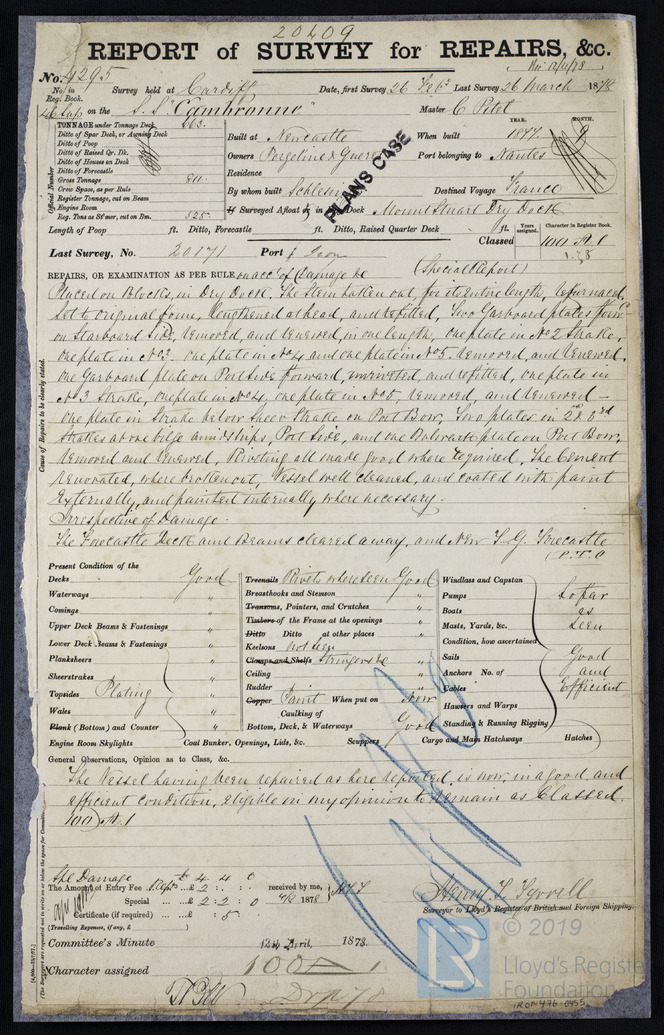 20409
REPORT of SURVEY for REPAIRS, &c.
No. 4295
No. in Reg. Book. Survey held at Cardiff Date, first Survey 26 Feb. Last Survey 26 March 1878
on the S.S. "Cambronne" Master C Pitel
TONNAGE under Tonnage Deck 263.
Ditto of Spar Deck, or Awning Deck
Ditto of Poop
Ditto of Raised Qr. Dk.
Ditto of Houses on Deck
Ditto of Forecastle
Gross Tonnage 811.
Cross Space, as per Rule
Register Tonnage, cut on Beam
Engine Room
Reg. Tons as St'mer, cut on Bm. 525.
Official Number
Built at Newcastle When built YEAR. 1877. MONTH. 9
Owners Port belonging to Nantes
Residence
By whom built Destined Voyage France
If Surveyed Afloat or in Dock Mount Stuart Dry Dock
PLANS CASE
Length of Poop ft. Ditto, Forecastle ft. Ditto, Raised Quarter Deck ft.
Classed Years assigned. Character in Register Book. 100 A.1
1.78
Last Survey, No. 20171 Port of
REPAIRS, OR EXAMINATION AS PER RULE on acct. of Damage &c (Special Report)
Placed on Blocks, in Dry Dock. The Stem taken out, for its entire length, refurnaced,
Set to original form, lengthened at head, and refitted, Two Garboard plates forwd
on Starboard Side, removed, and renewed, in one length, one plate in No 2 Strake,
one plate in No 3. one plate in No 4 and one plate in No 5. removed, and renewed,
One Garboard plate on Port Side forward, unriveted, and refitted, one plate in
No 3 Strake, one plate in No 4, one plate in No 5, removed, and renewed -
one plate in Strake below Sheer Strake on Port Bow. Two plates in 2d & 3rd
Strakes above bilge amidships, Port Side, and one Bulwark plate on Port Bow,
removed and renewed, Rivetting all made good where required, The Cement
renovated, where broken out, Vessel well cleaned, and coated with paint
Externally, and painted internally where necessary.
Irrespective of Damage.
The Forecastle Deck and Beams cleared away, and New T. G. Forecastle
P.T.O
Cause of Repairs to be clearly stated.
Present Condition of the
Decks Good
Waterways "
Comings "
Upper Deck Beams & Fastenings "
Lower Deck Beams & Fastenings "
Planksheers
Sheerstrakes
Topsides Plating "
Wales
Plank (Bottom) and Counter
Treenails Rivets where seen Good
Breasthooks and Stemson "
Transoms, Pointers, and Crutches "
Timbers of the Frame at the openings "
Ditto Ditto at other places "
Keelsons Not seen
Clamps and Shelfs Stringers &c "
Ceiling "
Rudder "
Copper Paint When put on Now
Caulking of
Bottom, Deck, & Waterways Good
Windlass and Capstan
Pumps So far
Boats as
Masts, Yards, &c. Seen
Condition, how ascertained
Sails Good
Anchors No. of and
Cables Efficient
Hawsers and Warps
Standing & Running Rigging
Engine Room Skylights Coal Bunker, Openings, Lids, &c. Scuppers Cargo and Main Hatchways Hatches
General Observations, Opinion as to Class, &c.
The Vessel having been repaired as here reported, is now, in a good and
efficient condition, eligible in my opinion to remain as Classed.
100 A.1
Spl Damage £ 4 4 0
The Amount of Entry Fee £ 2: : received by me,
Special £ 2 : 2 : 0 1878
Certificate (if required) £ : 5 :
(Travelling Expenses, if any, £ )
Henry L Tyrrell
Surveyor to Lloyd's Register of British and Foreign Shipping.
Committee's Minute 12th April, 1878.
Character assigned 100 A 1
© 2019
LR
Lloyd's Register
Foundation
IRON476-0455